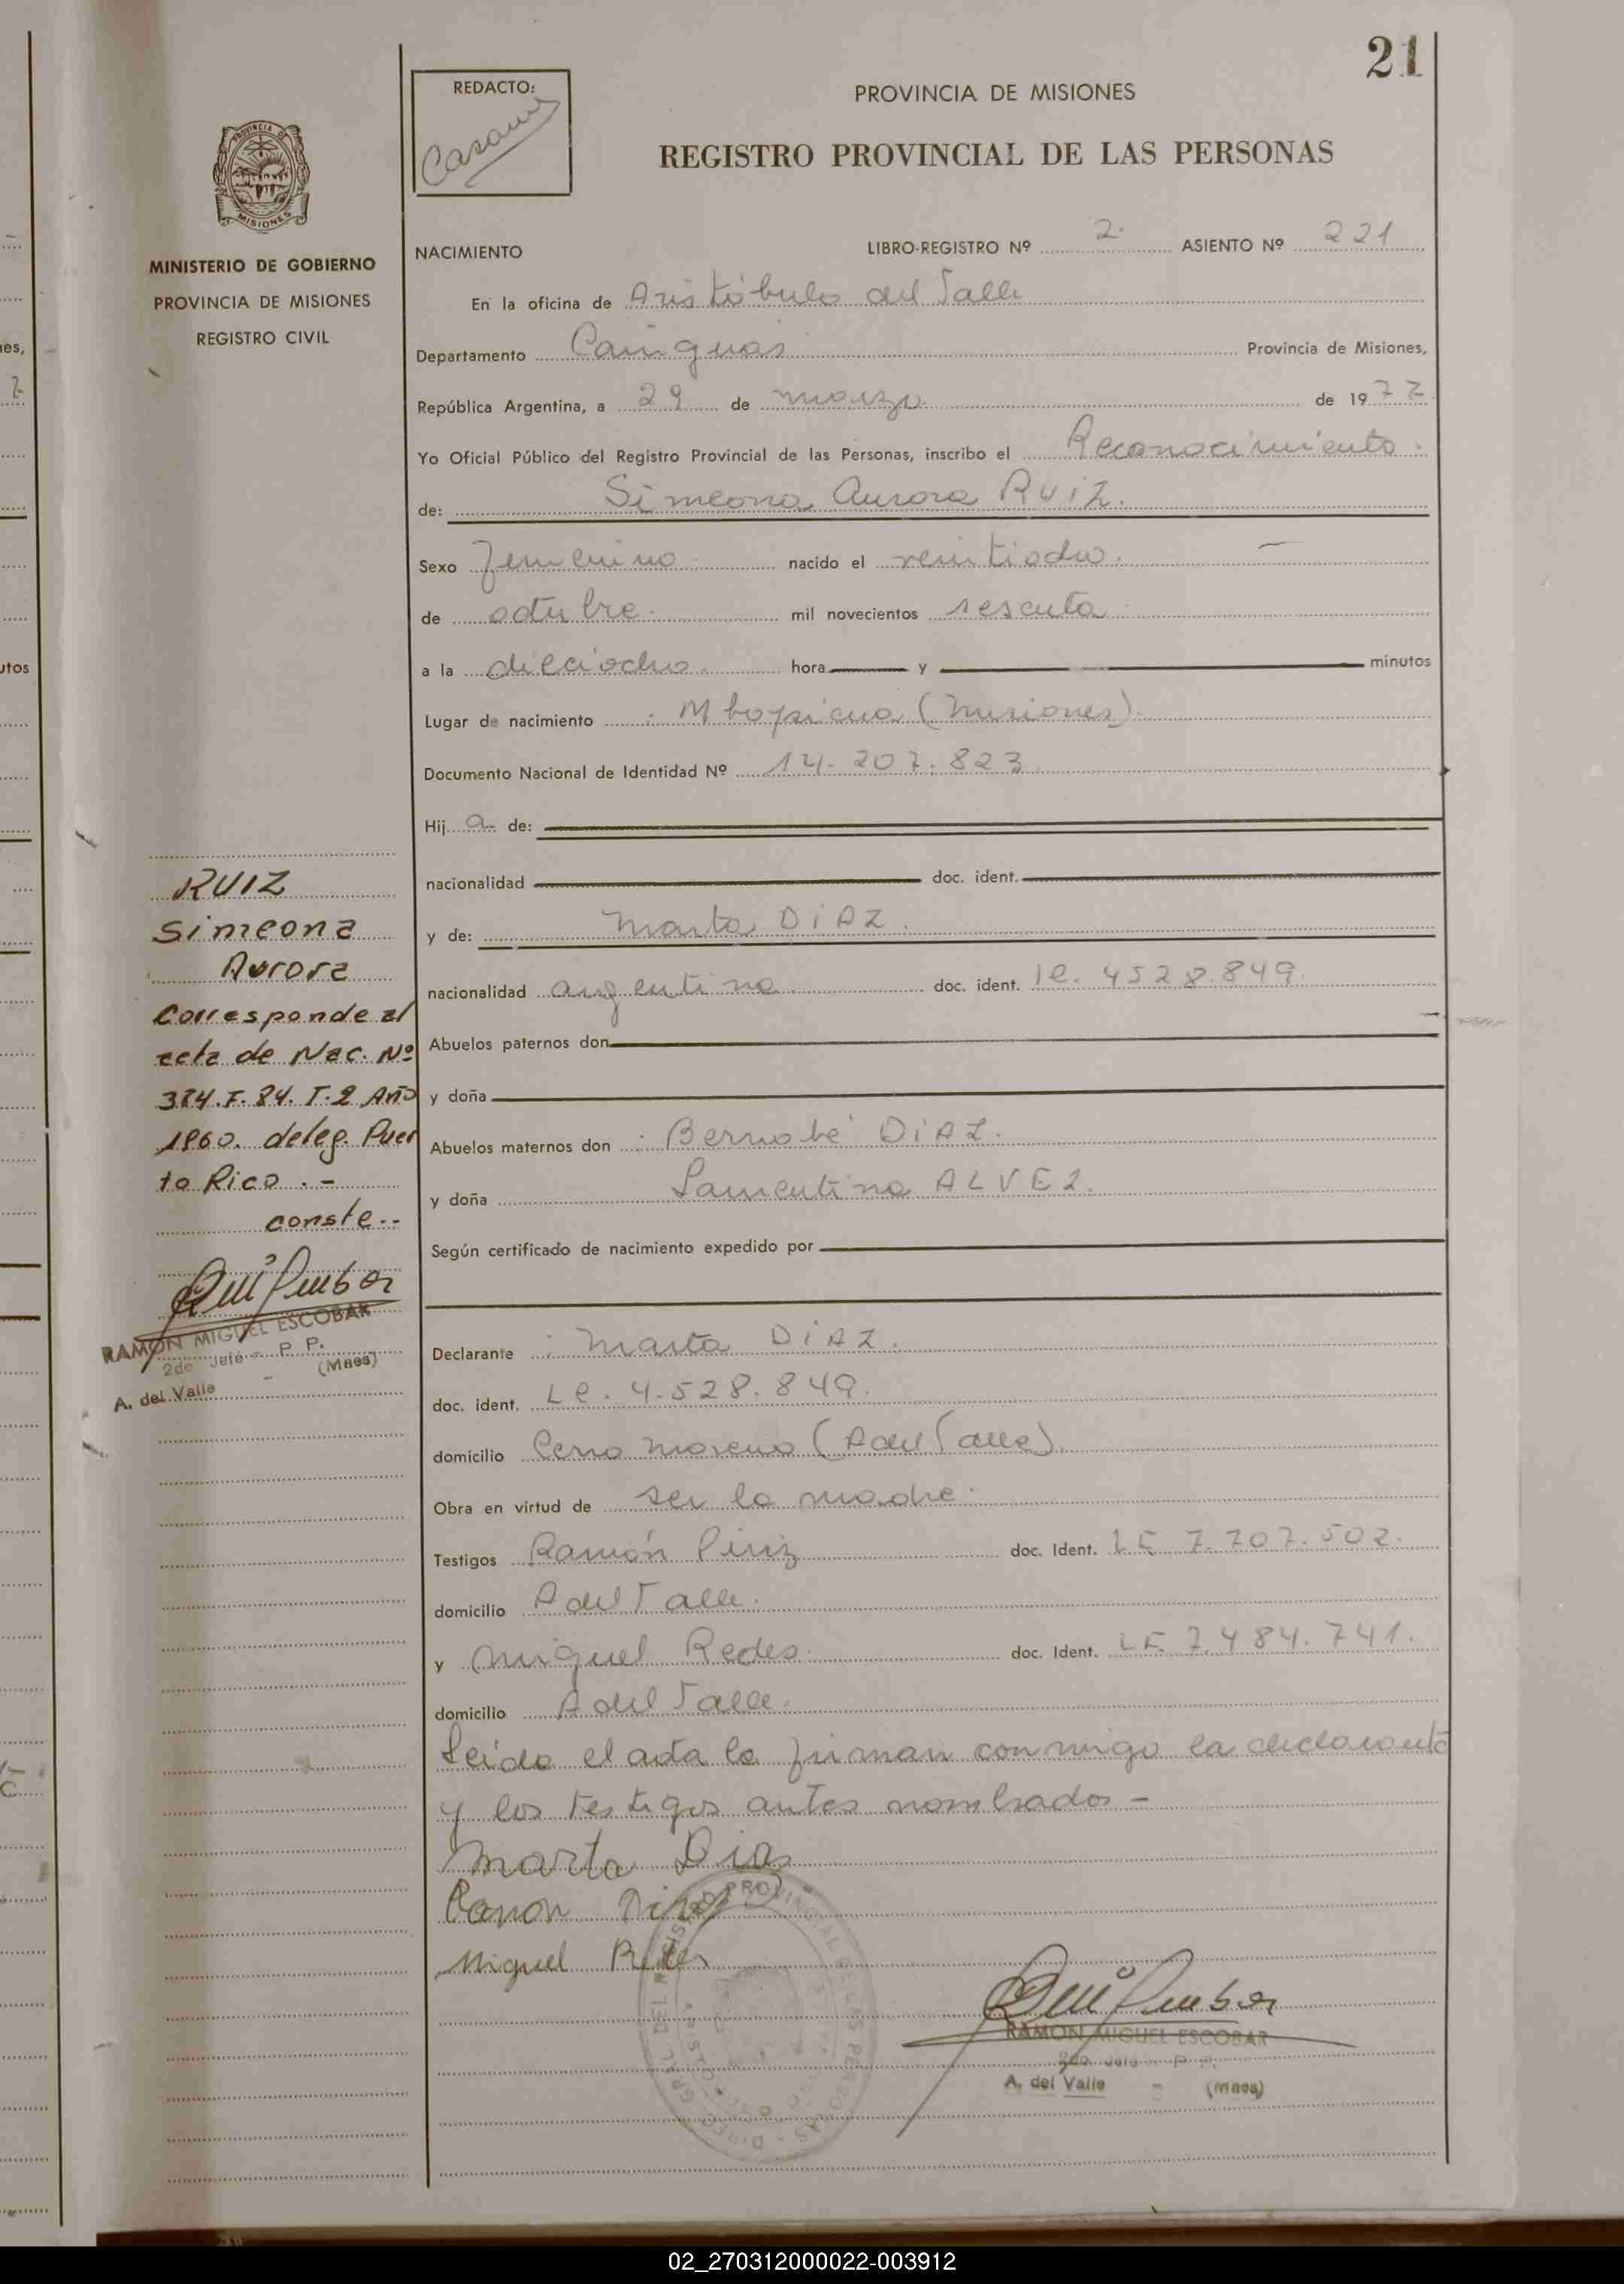 21
REDACTO:
PROVINCIA DE MISIONES
REGISTRO PROVINCIAL DE LAS PERSONAS
NACIMIENTO
LIBRO-REGISTRO Nº 2. ASIENTO Nº 221
En la oficina de Aristóbulo del Valle
Departamento Cainguás Provincia de Misiones,
República Argentina, a 29 de marzo de 1977
Yo Oficial Público del Registro Provincial de las Personas, inscribo el Reconocimiento.
de: Simeona Aurora RUIZ.
Sexo femenino nacido el veintiocho.
de octubre. mil novecientos sesenta
a la dieciocho. hora y minutos
Lugar de nacimiento : Mbopicuá (Misiones).
Documento Nacional de Identidad Nº 14.207.823
Hij a de:
nacionalidad doc. ident.
y de: Marta DIAZ.
nacionalidad argentina doc. ident. lc. 4528.849.
Abuelos paternos don
y doña
Abuelos maternos don : Bernabé DIAZ.
y doña Lamentina ALVEZ.
Según certificado de nacimiento expedido por
Declarante : Marta DIAZ.
doc. ident. Lc. 4.528.849.
domicilio Cerro Moreno (A del Valle).
Obra en virtud de ser la madre.
Testigos Ramón doc. Ident. LE 7.707.502.
domicilio A del Valle.
y Miguel Redes doc. Ident. LE. 7.484.741.
domicilio A del Valle.
Leida el acta la firman conmigo la declarante
y los testigos antes nombrados -
Marta Dias
Ramon
Miguel
RAMON MIGUEL ESCOBAR
2do Jefe P P.
A. del Valle - (Mnes)
PROVINCIA DE
MISIONES
MINISTERIO DE GOBIERNO
PROVINCIA DE MISIONES
REGISTRO CIVIL
RUIZ
Simeona
Aurora
Corresponde al
acta de Nac. Nº
384. F. 84. T. 2 Año
1960. deleg. Puer
to Rico . -
conste. -
RAMON MIGUEL ESCOBAR
2do Jefe - P P.
A. del Valle - (Mnes)
02_270312000022-003912